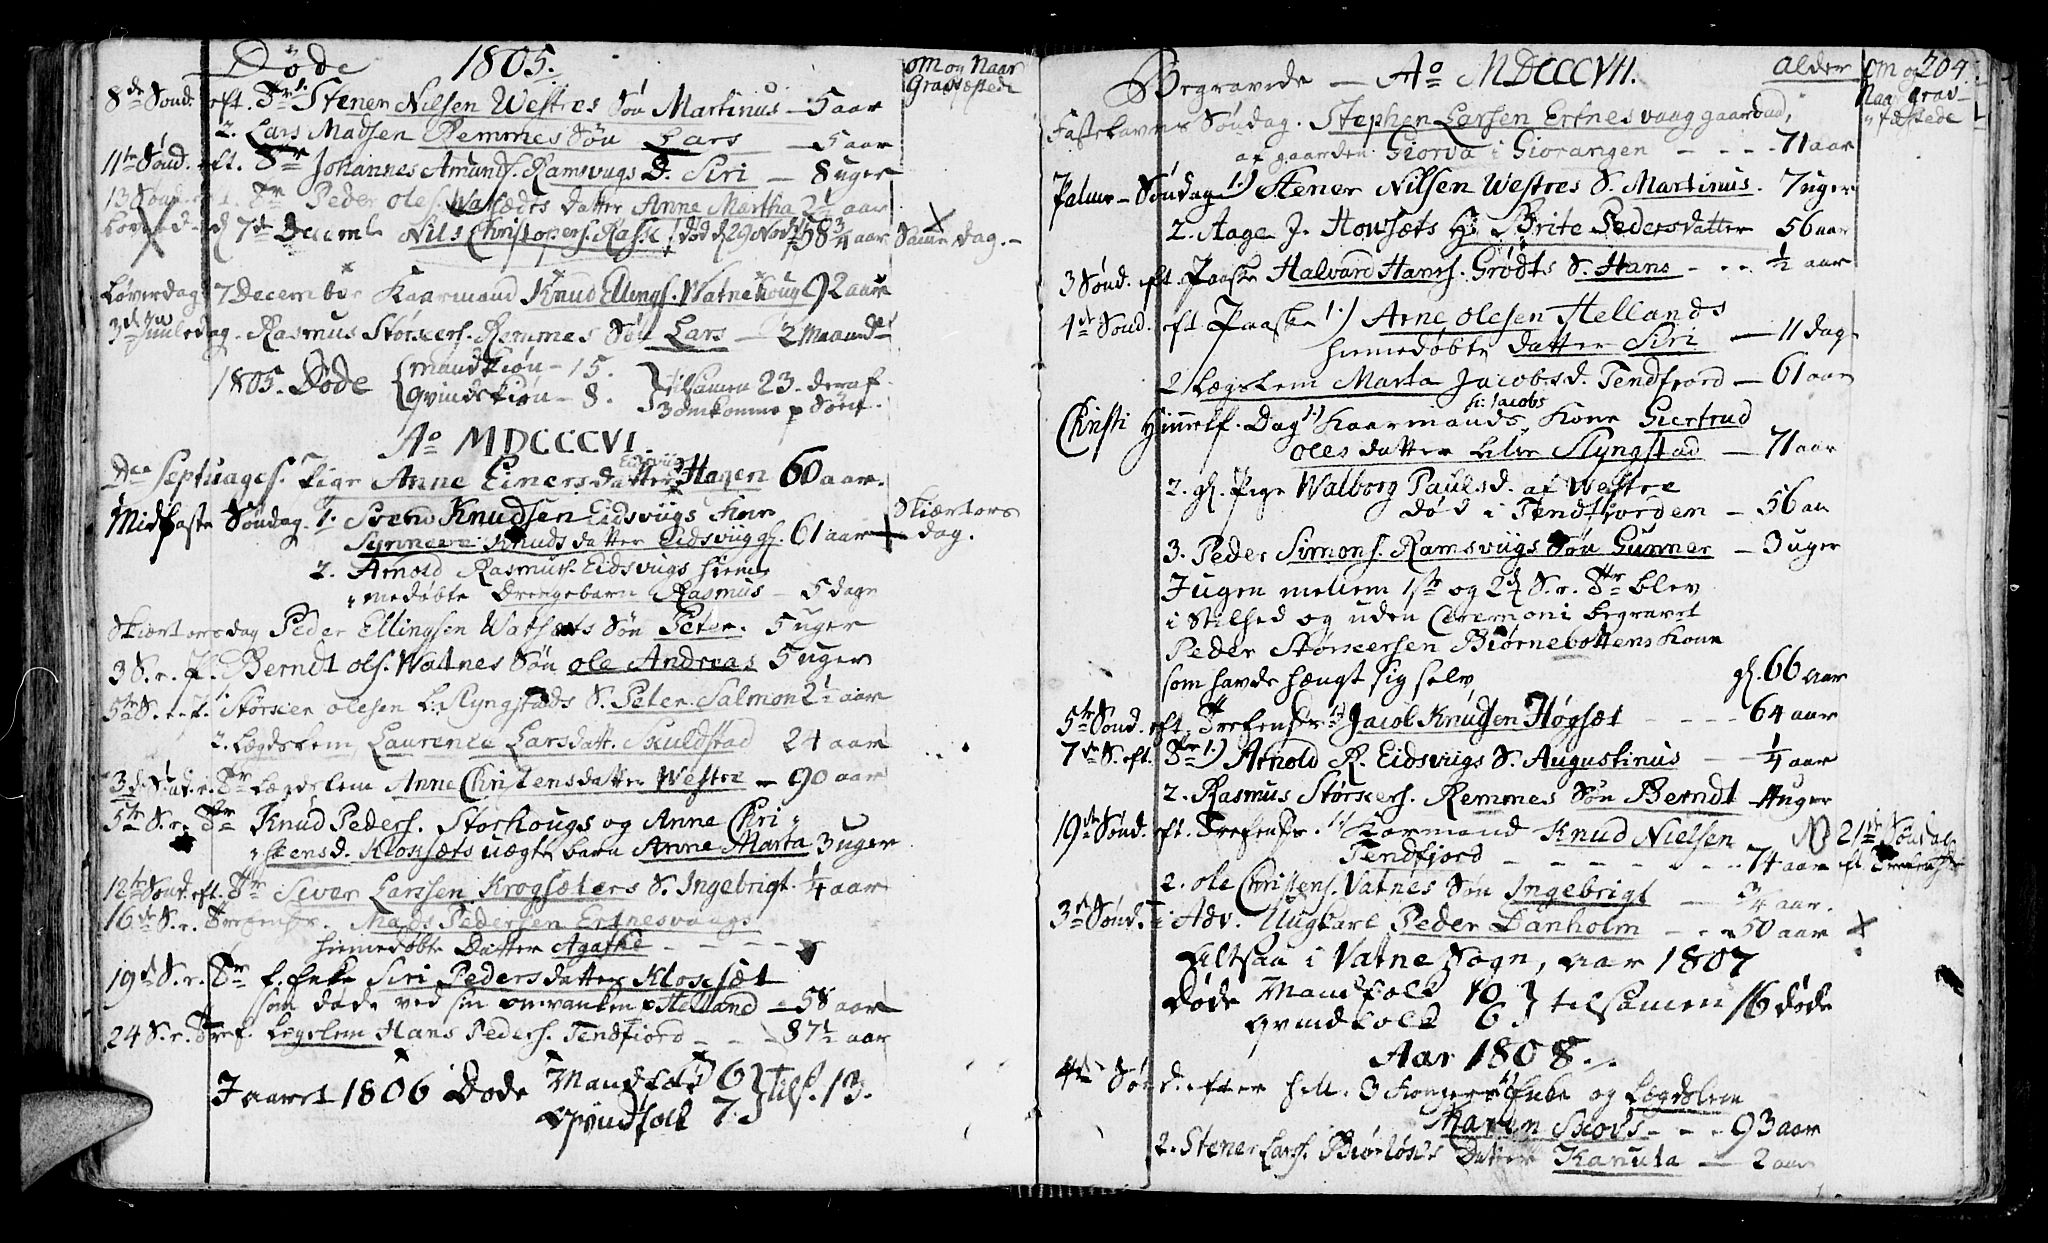 Døde 1805. om og Naar
Graffæstede
8de Sønd. eft. Tr. 1. Stener Nilsen Westres Søn Martinus — 5 aar
2. Lars Madsen Remmes Søn Lars — 5 aar
11te Sønd. eft. Tr. Johannes Amunds. Ramsvigs D. Siri — 8 uger
13 Sønd. eft. Tr. Peder Olesen datter Anne Martha 2½ aar
d 7de Decembr Nils Christophers. Raske død d 29 Nov. 58¾ aar Samme dag.
Løverdag 7 December Kaarmand Knud Ellings. Watnehoug 92 aar
3de Juuledag. Rasmus Størkers. Remmes Søn Lars — 2 Maaned
1805. Døde { Mandkiøn — 15.
Qvindekiøn — 8. } tilsamen 23. deraf
3 omkomne p Søen.
Ao MDCCCVI.
Dca Septuages. Pige Anne Einersdatter Hagen 60 aar.
Eidsvig
Midfaste Søndag. 1. Svend Knudsen Eidsviigs Kone Skiertors
Synneve Knudsdatter Eidsviig gl. 61 aar + dag.
2. Arnold Rasmus. Eidsvigs hiem
medøbte Drengebarn Rasmus — 5 dage
Skiertorsdag Peder Ellingsen Watnes Søn Peter. 5 uger
3 S. e. P. Berndt Ols. Watnes Søn Ole Andreas 5 uger
5te S. e. P. 1. Størker Olesen L. Slyngstads S. Peter Salmon 2½ aar
2. Legdslem Laurence Larsdatt. Skuldstad 24 aar
3d Sønd. e. Tr. Legdslem Anne Christensdatter Westre — 90 aar
5te S. e. Tr. Knud Peders. Storhougs og Anne Chri
stensd. Kloksæts uægte barn Anne Marta 3 uger
12te Sønd. eft. Tr. Siver Larssen Krogsæters S. Ingebrigt. ¼ aar
16de S. e. Trefensr. Mads Pedersen Ertnesvaags
hiemedøbte Datter Agathe
19de S. e. Tr. Enke Siri Pedersdatter Kloksæt
som døde ved sin omvanken p Helland — 58 aar
24 S. e. Tref. Legslem Hans Peders. Tendfiord — 87½ aar
I aaret 1806 Døde Mandfolk 6 } tils. 13.
Qvindfolk 7
Begravede — Ao MDCCCVII. Alder om og 204
Naar Grav-
fæstede
Fastelavns Søndag. Stephen Larsen Ertnesvaag gaardmd,
af gaarden Giorva i Giorangen — 71 aar
Palme-Søndag 1.) Stener Nilsen Westres S. Martinus. 7 uger
2. Aage J. Hovsæts H. Brite Pedersdatter 56 aar
3 Sønd. eft. Paaske Halvard Hanss. Grødts S. Hans — ½ aar
4de Sønd. eft Paaske 1.) Arne Olesen Hellands
hiemedøbte datter Siri — 11 dag
2 Lægslem Marta Jacobsd. Tendfiord — 61 aar
H: Jacobs
Christi Himmelf. Dag 1.) Kaarmands Kone Giertrud
Olesdatter Lille Slyngstad — 71 aar
2. gl. Pige Walborg Paulsd. af Westre
død i Tendfiorden — 56 aa
3. Peder Simons. Ramsviigs Søn Gunner — 3 uger
I ugen mellem 1ste og 2d S. e. Tr. blev
i Stilhed og uden Ceremoni begravet
Peder Størkersen Biørnebottens Kone
som havde hængt sig selv gl. 66 aar
5te Sønd. eft. Trefensr. Jacob Knudsen Høgsæt — 64 aar
7de S. eft. Tr. 1.) Arnold R. Eidsviigs S. Augustinus — ¼ aar
2. Rasmus Størkers. Remmes Søn Berndt — 4 uger
19de Sønd. eft. Trefensr. 1. Karmand Knud Nielsen 21de Søndag
Tendfjord — 74 aar eft. Trefensr
2. Ole Christens. Vatnes Søn Ingebrigt — ¾ aar.
3de Sønd. i Adv. Ungkarl Peder Danholm — 50 aar
Altsaa i Vatne Sogn, aar 1807
Døde Mandfolk 10 } tilsamen 16 døde
Qvindfolk 6
Aar 1808.
4de Sønd. efter hell. 3 Konger 1. Enke og Legdslem
Karen Skovs — 93 aar
2. Stener Lars. Datter Kanuta — 2 aar